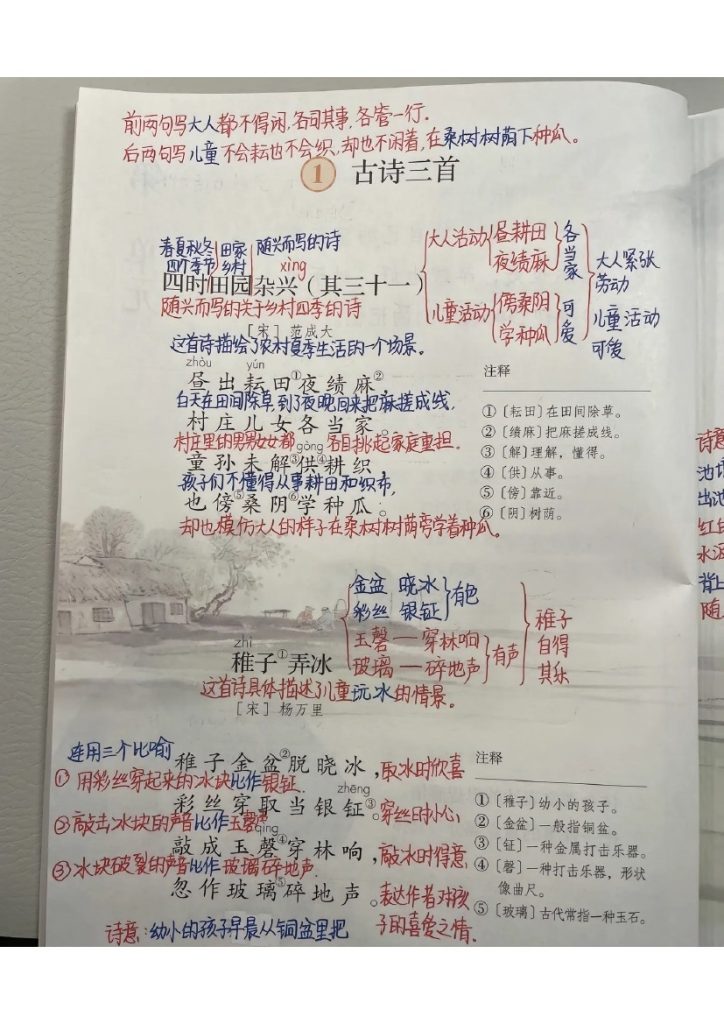 前两句写大人都不得闲,各司其事,各管一行。
后两句写儿童不会耘也不会织,却也不闲着,在桑树树荫下种瓜。
1 古诗三首
春夏秋冬 田家 随兴而写的诗
四个季节 乡村 xìng
四时田园杂兴(其三十一)
随兴而写的关于乡村四季的诗
[宋] 范成大
大人活动 昼耕田 各当家
夜绩麻
儿童活动 傍桑阴 可爱
学种瓜
大人紧张
劳动
儿童活动
可後
这首诗描绘了农村夏季生活的一个场景。
zhòu yún
昼出耘田①夜绩麻②,
白天在田间除草,到了夜晚回来把麻搓成线.
村庄儿女各当家。
村庄里的男男女女都 各自挑起家庭重担.
gòng
童孙未解③供④耕织,
孩子们不懂得从事耕田和织布,
也傍⑤桑阴⑥学种瓜。
却也模仿大人的样子在桑树树荫旁学着种瓜。
注释
①〔耘田〕在田间除草。
②〔绩麻〕把麻搓成线。
③〔解〕理解,懂得。
④〔供〕从事。
⑤〔傍〕靠近。
⑥〔阴〕树荫。
诗意
池
出池
红
水
背上
随
金盆 晓冰 有色
彩丝 银钲
玉磬——穿林响 有声
玻璃——碎地声
稚子
自得
其乐
zhì
稚子①弄冰
这首诗具体描述了儿童玩冰的情景。
[宋] 杨万里
连用三个比喻
稚子金盆②脱晓冰,取冰时欣喜
①用彩丝穿起来的冰块比作银钲.
zhēng
彩丝穿取当银钲③。穿丝时小心
②敲击冰块的声音比作玉磬声
qìng
敲成玉磬④穿林响,敲冰时得意
③冰块破裂的声音比作玻璃碎地声.
忽作玻璃⑤碎地声。表达作者对孩
子的喜爱之情.
诗意:幼小的孩子早晨从铜盆里把
注释
①〔稚子〕幼小的孩子。
②〔金盆〕一般指铜盆。
③〔钲〕一种金属打击乐器。
④〔磬〕一种打击乐器,形状
像曲尺。
⑤〔玻璃〕古代常指一种玉石。